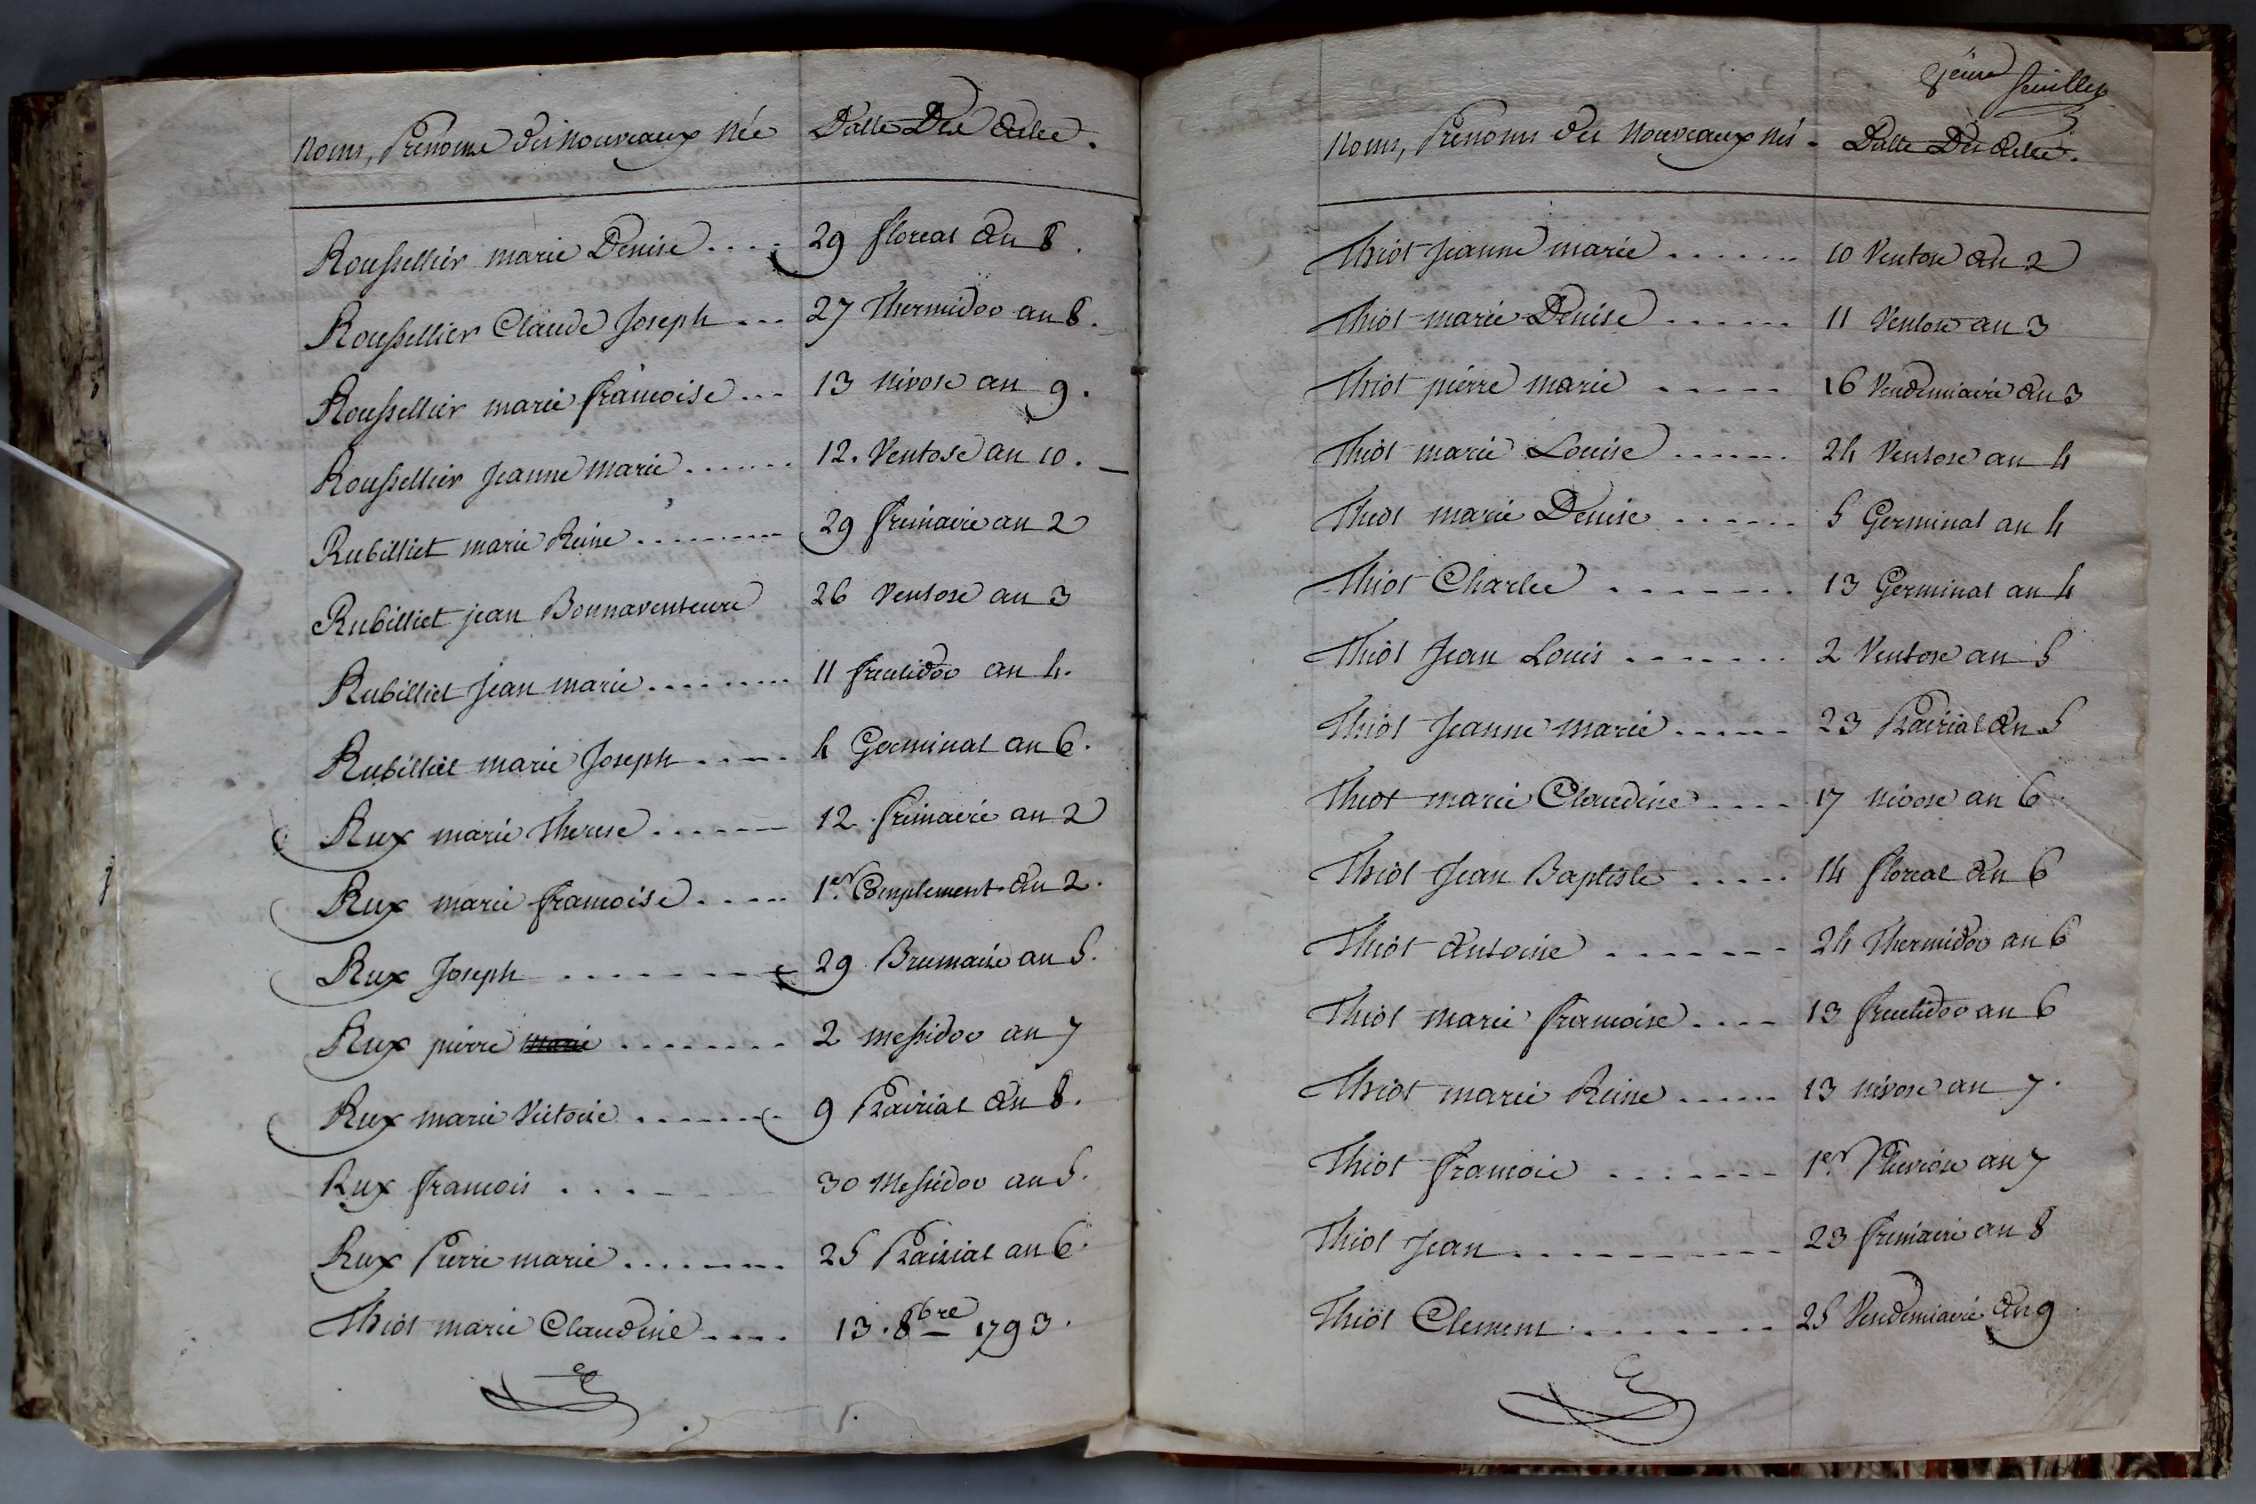 Noms, Prenoms des nouveaux Nés Datte Des actes.
Roussellier marie Denise .... 29 floreal an 8.
Roussellier Claude Joseph ... 27 Thermidor an 8.
Roussellier marie françoise ... 13 nivose an 9.
Roussellier Jeanne marie ...... 12. Ventose an 10.
Rubilliet marie Reine ........ 29 frimaire an 2
Rubilliet jean Bonnaventeure 26 Ventose an 3
Rubilliet Jean marie ........ 11 fructidor an 4.
Rubilliet marie Joseph ..... 4 Germinal an 6.
Rux marie Therese ...... 12 frimaire an 2
Rux marie françoise ..... 1er Complement. an 2.
Rux Joseph ........ 29 Brumaire an 5.
Rux pierre marie ........ 2 messidor an 7
Rux marie Victoire ....... 9 Prairial an 8.
Rux francois .... 30 Messidor an 5.
Rux Pierre marie ........ 25 Prairial an 6.
Thiot marie Claudine .... 13. 8bre 1793.
feuillet
Noms, Prenoms des nouveaux nés. Datte Des actes.
Thiot Jeanne marie ....... 10 Ventose an 2
Thiot marie Denise ...... 11 Ventose an 3
Thiot pierre marie ..... 16 Vendemiaire an 3
Thiot marie Louise ...... 24 Ventose an 4
Thiot marie Denise ...... 5 Germinal an 4
Thiot Charles ....... 13 Germinal an 4
Thiot Jean Louis ....... 2 Ventose an 5
Thiot Jeanne marie ..... 23 Prairial an 5
Thiot marie Claudine .... 17 nivose an 6
Thiot Jean Baptiste ..... 14 floreal an 6
Thiot Antoine ....... 24 Thermidor an 6
Thiot marie françoise .... 13 fructidor an 6
Thiot marie Reine ..... 13 nivose an 7.
Thiot francois ....... 1er Pluviose an 7
Thiot Jean .......... 23 frimaire an 8
Thiot Clement ........ 25 Vendemiaire an 9